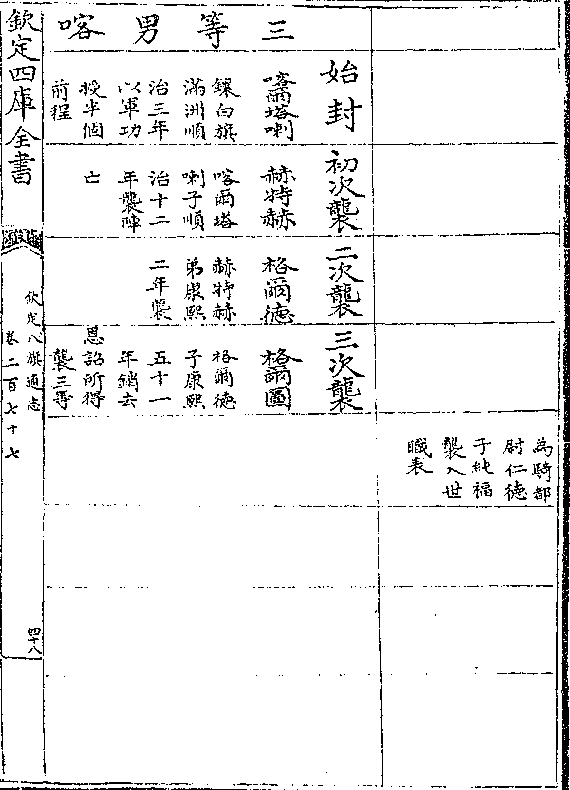 為騎都
尉仁德
子純福
襲入世
職表
三等男喀
始封
喀爾塔喇
鑲白旗
滿洲順
治三年
以軍功
授半個
前程
初次襲
赫特赫
喀爾塔
喇子順
治十二
年襲陣
亡
二次襲
格爾德
赫特赫
弟康熙
二年襲
三次襲
格爾圖
格爾德
子康熙
五十一
年銷去
恩詔所得
襲三等
欽定四庫全書
欽定八旗通志
卷二百七十七
四十八